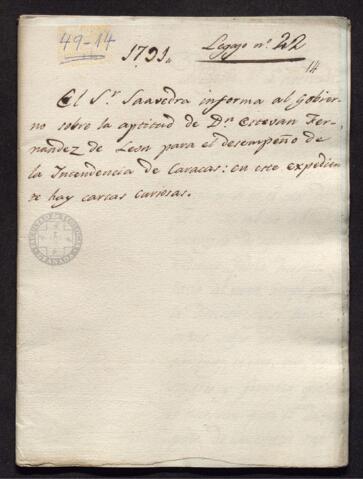 49-14
1791.
Legajo nº. 22
14
El Sr. Saavedra informa al Gobier-
no sobre la aptitud de Dn. Estevan Fer-
nandez de Leon para el desempeño de
la Intendencia de Caracas: en este expedien
te hay cartas curiosas.